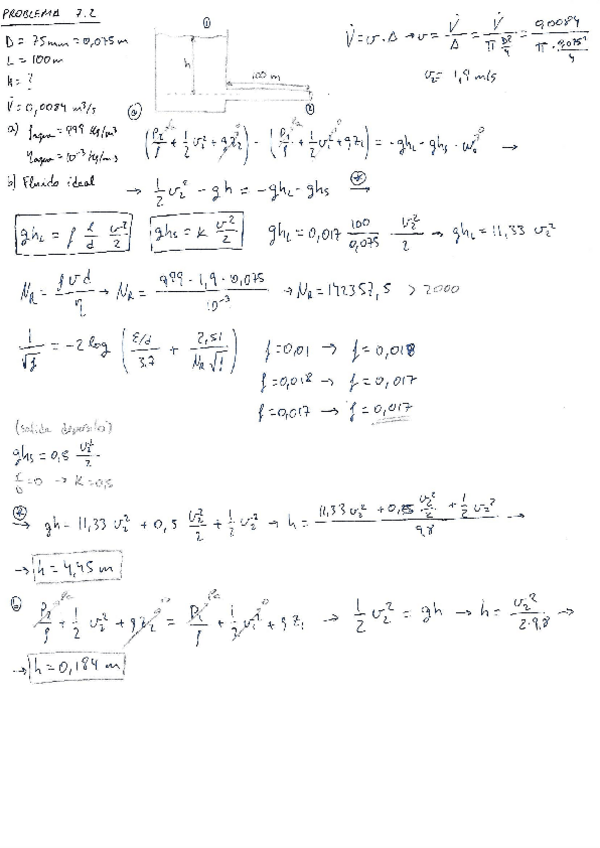 PROBLEMA 7.2
D = 75mm = 0,075m
L = 100m
h = ?
V̇ = 0,0084 m³/s
a) ρagua = 999 kg/m³
ηagua = 10⁻³ kg/m·s
b) Fluido ideal
①
h
100 m
②
V̇ = v · A → v = V̇/A = V̇/(π D²/4) = 0,0084/(π · 0,075²/4)
v₂ = 1,9 m/s
ⓐ (P₂/ρ + 1/2 v₂² + gz₂) - (P₁/ρ + 1/2 v₁² + gz₁) = -ghL - ghs - ws →
→ 1/2 v₂² - gh = -ghL - ghs ⊛→
ghL = f L/d v²/2
ghs = K v²/2
ghL = 0,017 100/0,075 v₂²/2 → ghL = 11,33 v₂²
NR = ρvd/η → NR = 999 · 1,9 · 0,075/10⁻³ → NR = 142357,5 > 2000
1/√f = -2 log (ε/d/3,7 + 2,51/NR√f)
f = 0,01 → f = 0,018
f = 0,018 → f = 0,017
f = 0,017 → f = 0,017
(salida deposito)
ghs = 0,5 v₂²/2
r/D = 0 → K = 0,5
⊛→ gh = 11,33 v₂² + 0,5 v₂²/2 + 1/2 v₂² → h = (11,33 v₂² + 0,5 v₂²/2 + 1/2 v₂²)/9,8 →
→ h = 4,45 m
ⓑ P₂/ρ + 1/2 v₂² + gz₂ = P₁/ρ + 1/2 v₁² + gz₁ → 1/2 v₂² = gh → h = v₂²/2·9,8 →
→ h = 0,184 m